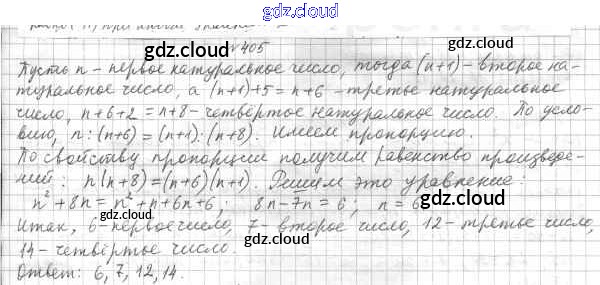 gdz.cloud
№405
gdz.cloud gdz.cloud
Пусть n - первое натуральное число, тогда (n+1) - второе на-
туральное число, а (n+1)+5 = n+6 - третье натуральное
gdz.cloud
число, n+6+2 = n+8 - четвёртое натуральное число. По усло-
вию, n:(n+6) = (n+1):(n+8). Имеем пропорцию.
gdz.cloud gdz.cloud
По свойству пропорции получим равенство произведе-
ний: n(n+8)=(n+6)(n+1). Решим это уравнение:
n²+8n = n²+n+6n+6; 8n-7n=6; n=6
gdz.cloud
Итак, 6 - первое число, 7 - второе число, 12 - третье число,
gdz.cloud gdz.cloud
14 - четвёртое число.
Ответ: 6, 7, 12, 14.
gdz.cloud